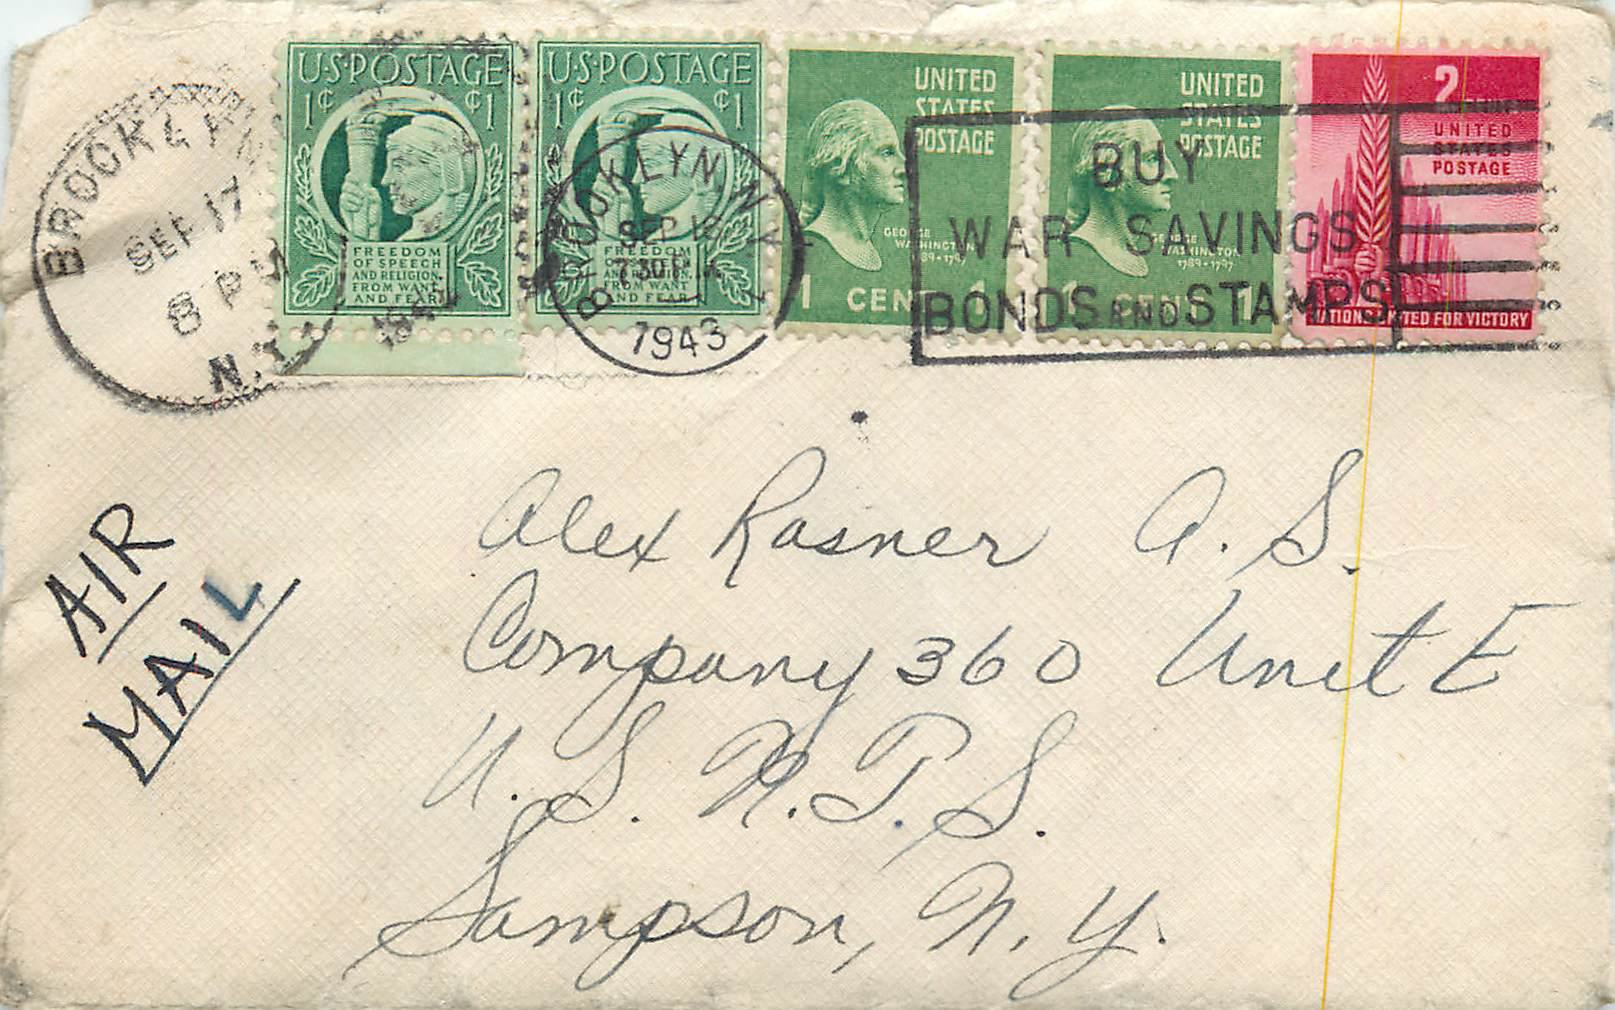 BROOKLYN
SEP 17
8 PM
N.Y.
1943
U·S·POSTAGE
1¢ ¢1
FREEDOM
OF SPEECH
AND RELIGION,
FROM WANT
AND FEAR
U·S·POSTAGE
1¢ ¢1
FREEDOM
OF SPEECH
AND RELIGION,
FROM WANT
AND FEAR
BROOKLYN N.Y.
SEP
1943
UNITED
STATES
POSTAGE
GEORGE
WASHINGTON
1789·1797
1 CENT 1
UNITED
STATES
POSTAGE
GEORGE
WASHINGTON
1789·1797
1 CENT 1
2
UNITED
STATES
POSTAGE
NATIONS UNITED FOR VICTORY
BUY
WAR SAVINGS
BONDS AND STAMPS
AIR
MAIL
Alex Rasner A. S.
Company 360 Unit E
U. S. N. T. S.
Sampson, N. Y.